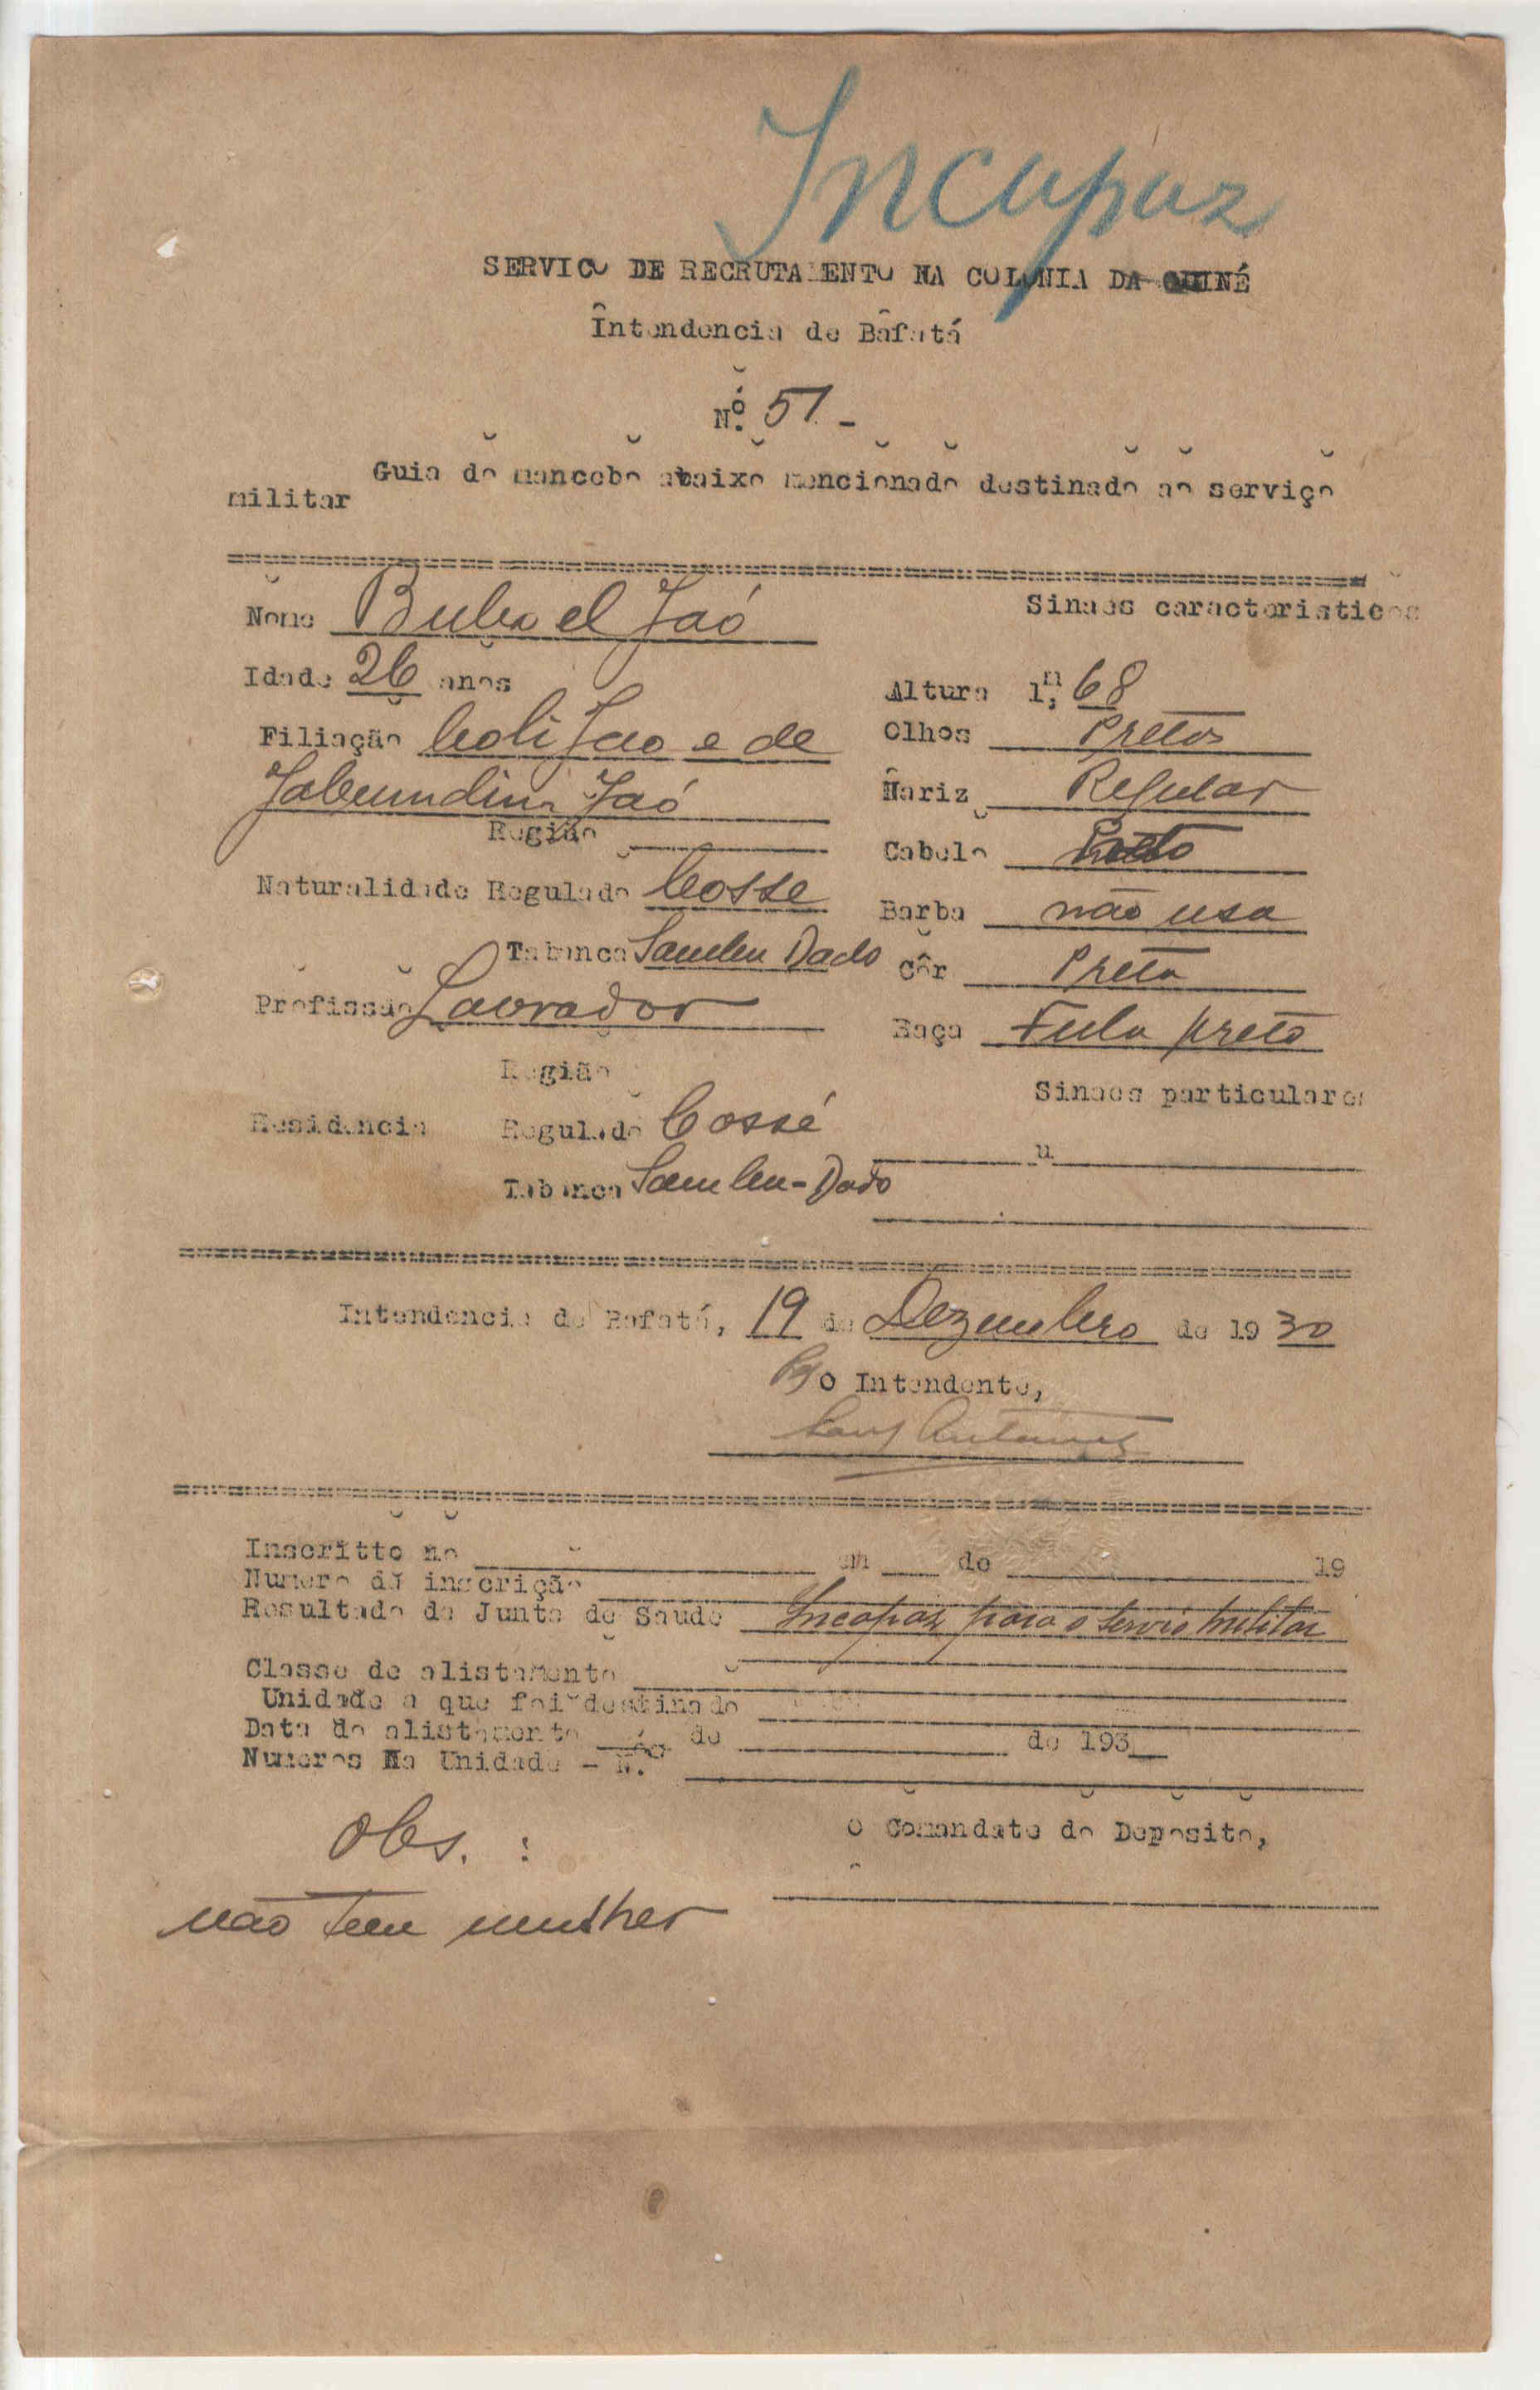 Incapaz
SERVICO DE RECRUTAMENTO NA COLONIA DA GUINÉ
Intendencia de Bafatá
N.º 51 -
Guia do mancebo abaixo mencionado destinado ao serviço
militar
Nome Buba el Jaó
Sinaes caracteristicos
Idade 26 anos
Altura 1,m 68
Filiação Coli Jao e de
Olhos Pretos
Jaó
Nariz Regular
Região
Cabelo Preto
Naturalidade Regulado Cosse
Barba não usa
Tabanca Dado
Côr Preta
Profissão Lavrador
Raça Fula preto
Região
Sinaes particulares
Residencia Regulado Cossé
"
Tabanca Dado
Intendencia de Bafatá, 19 de Dezembro de 1930
O Intendente,
Inscritto no em de 19
Numero da inscrição
Resultado da Junta de Saude Incapaz para o servio militar
Classe de alistamento
Unidade a que foi destinado
Data do alistamento de de 193
Numeros na Unidade - N.º
Obs. :
O Comandate do Deposito,
não tem mulher